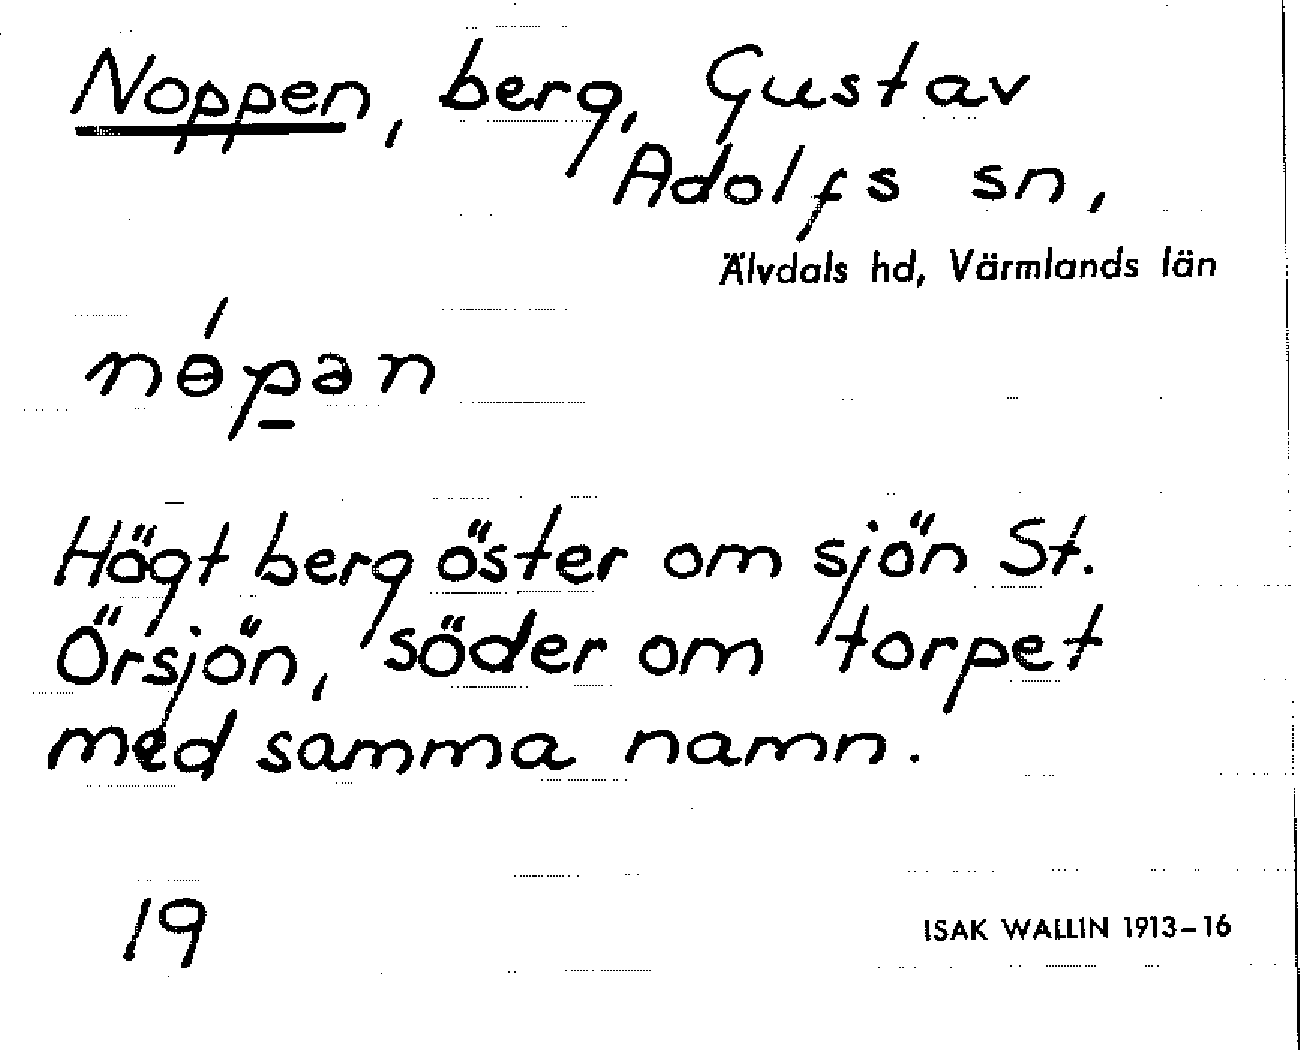 Noppen, berg, Gustav
Adolfs sn,
Älvdals hd, Värmlands län
nɵ́p̱ən
Högt berg öster om sjön St.
Örsjön, söder om torpet
med samma namn.
19
ISAK WALLIN 1913-16